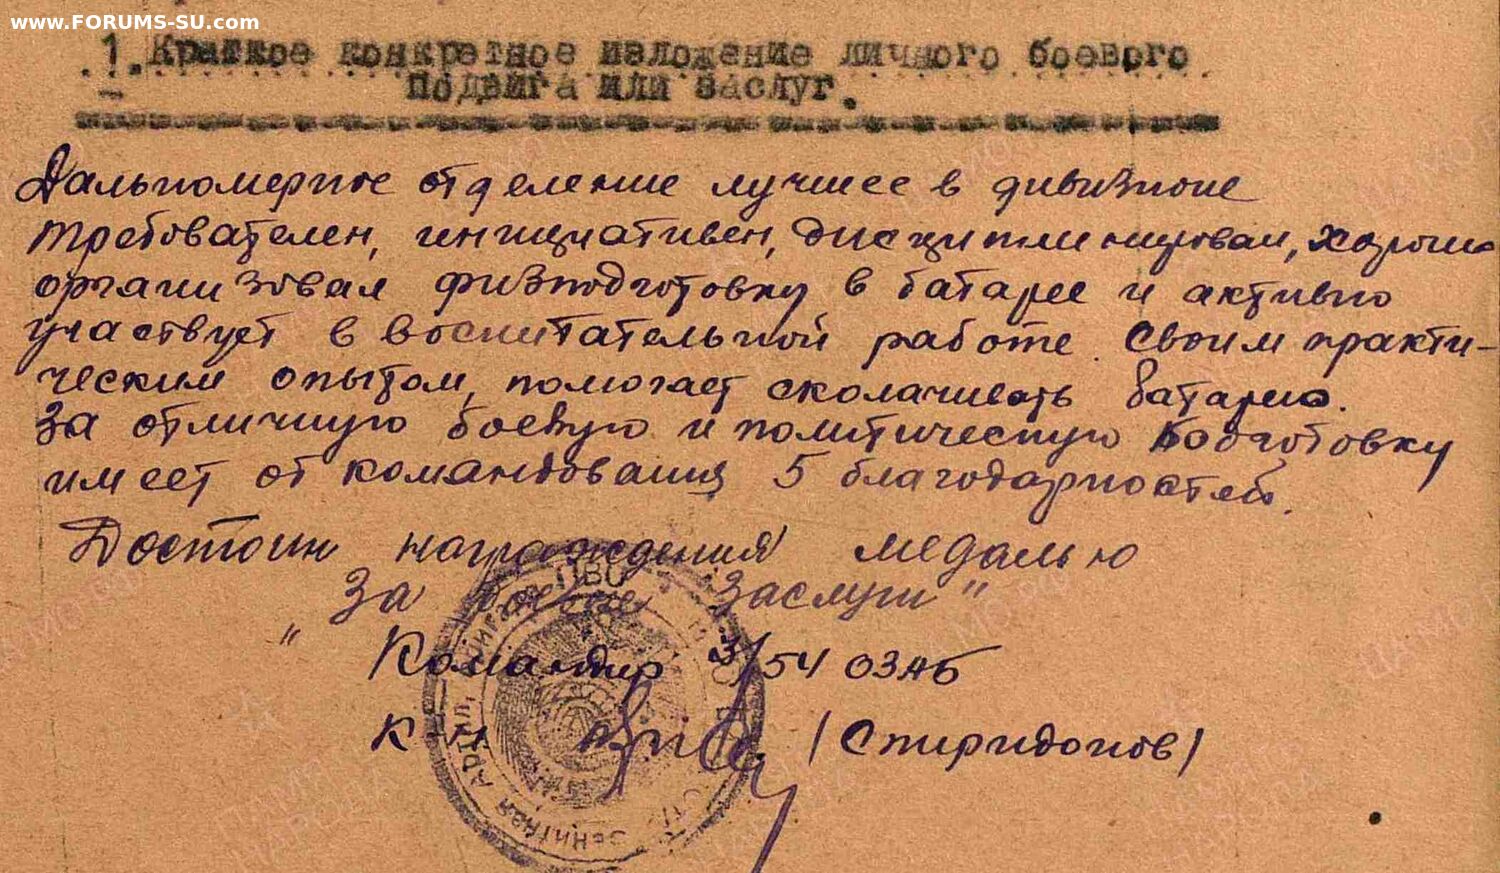 www.FORUMS-SU.com
1. Краткое конкретное изложение личного боевого
подвига или заслуг.
Дальномерное отделение лучшее в дивизионе
требователен, инициативен, дисциплинирован, хорошо
организовал физподготовку в батарее и активно
участвует в воспитательной работе. Своим практи-
ческим опытом, помогает сколачивать батарею.
За отличную боевую и политическую подготовку
имеет от командования 5 благодарностей.
Достоин награждения медалью
"За боевые заслуги"
Командир 3/54 ОЗАБ
к-н (Спиридонов)
ПВО
Зенитная Артил.